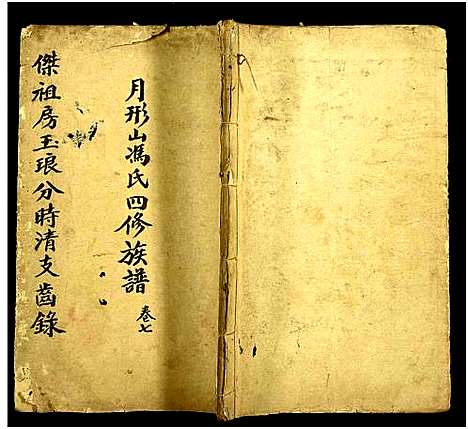 月形山馮氏四修族譜 卷七
傑祖房玉琅分時清支齒錄